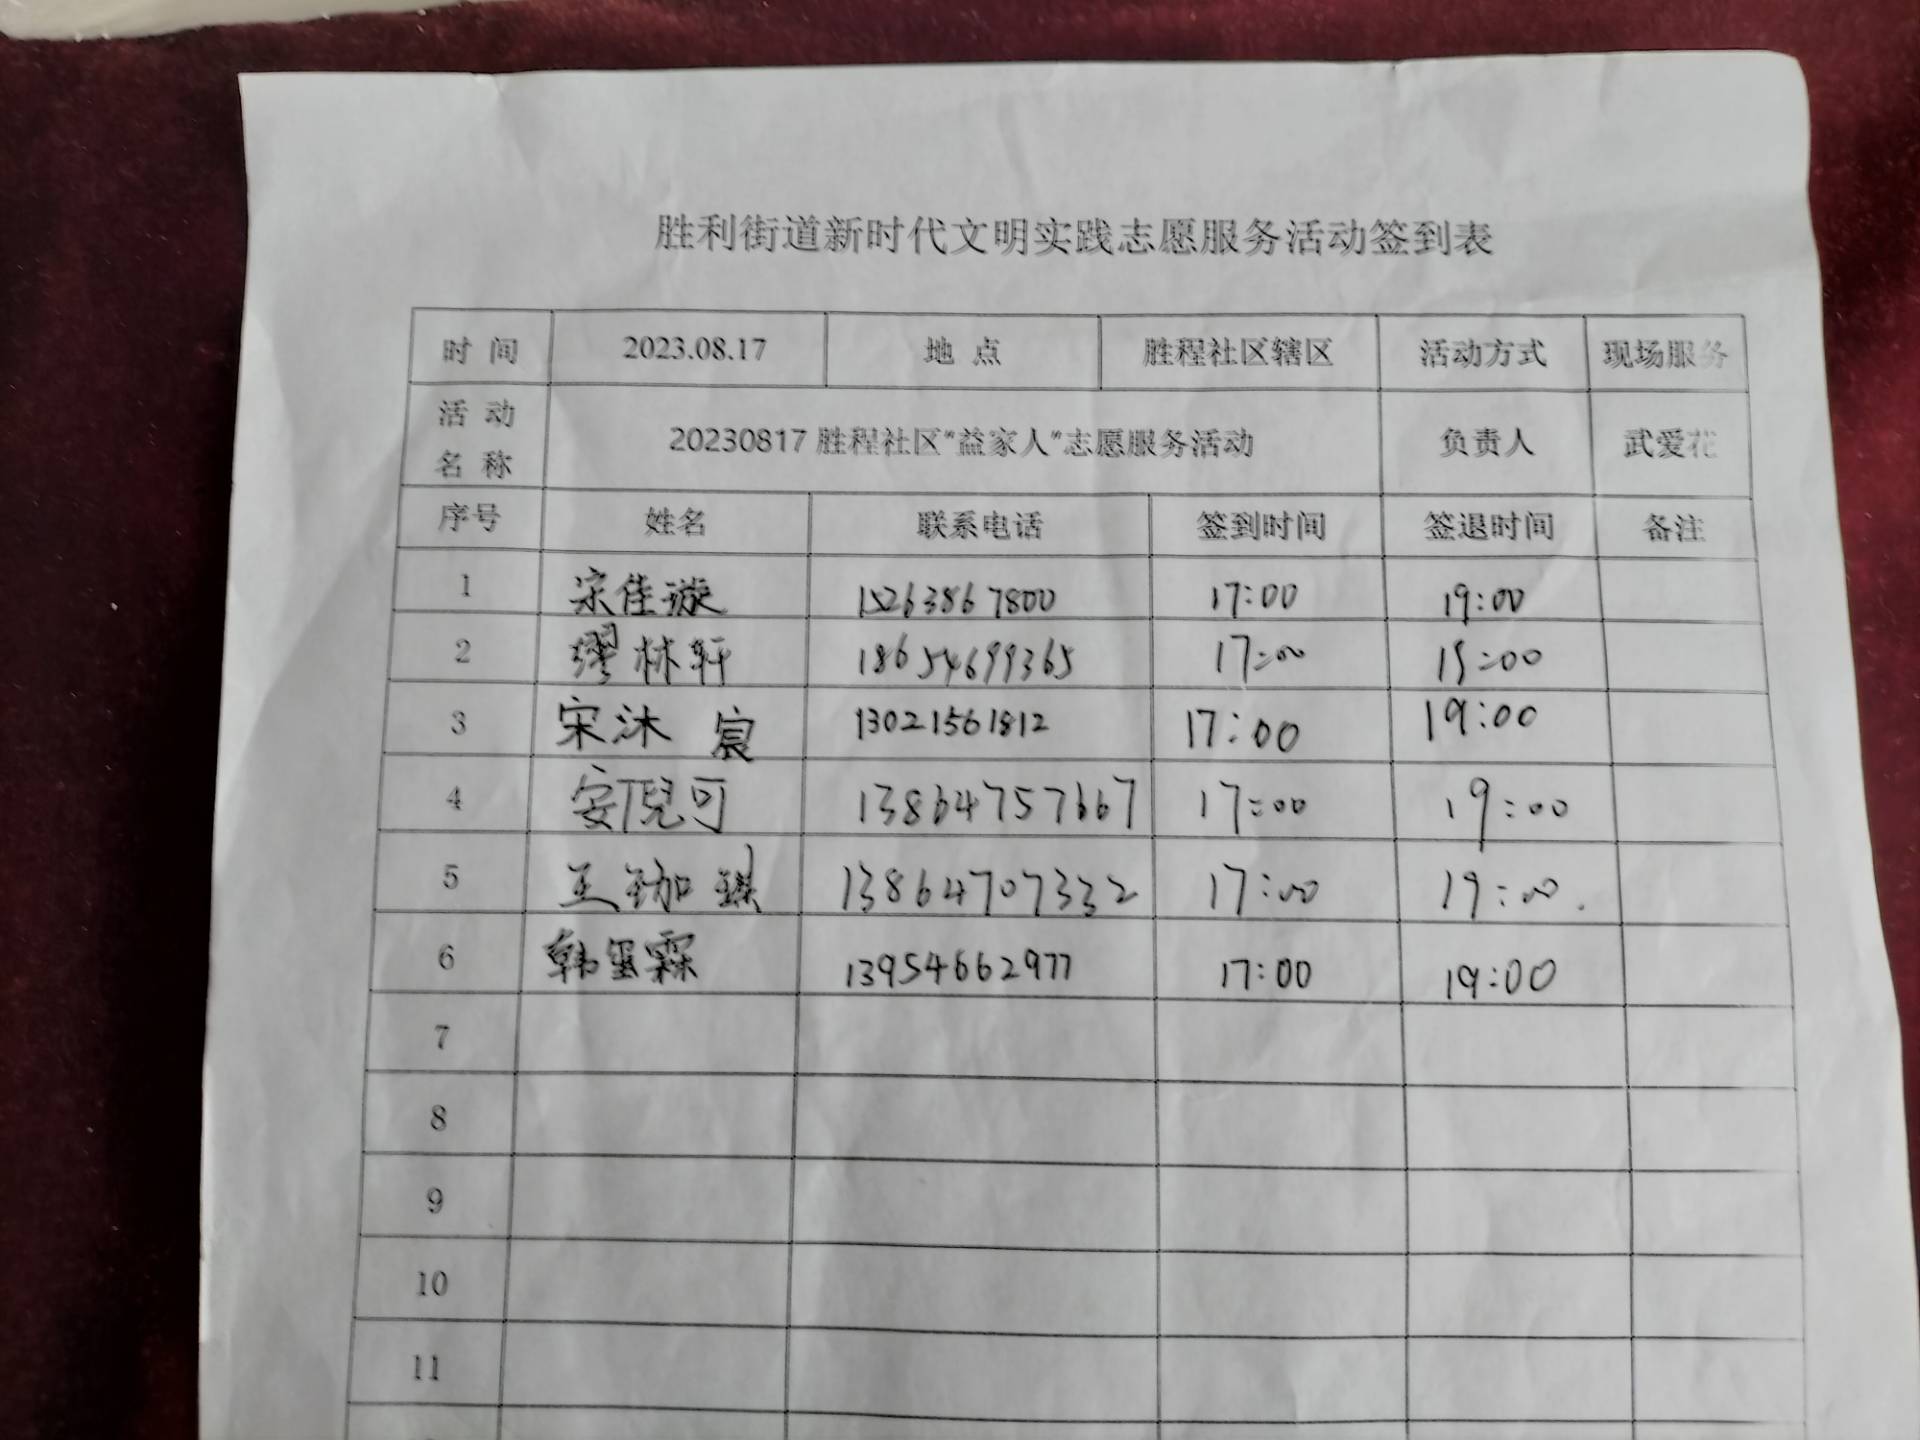 胜利街道新时代文明实践志愿服务活动签到表
时 间 2023.08.17 地 点 胜程社区辖区 活动方式 现场服务
活 动 名 称 20230817 胜程社区"益家人"志愿服务活动 负责人 武爱花
序号 姓名 联系电话 签到时间 签退时间 备注
1 宋佳璇 15263867800 17:00 19:00
2 缪林轩 18654699365 17:00 19:00
3 宋沐宸 13021561812 17:00 19:00
4 安可 13864757667 17:00 19:00
5 王珈琪 13864707332 17:00 19:00.
6 韩玺霖 13954662977 17:00 19:00
7
8
9
10
11